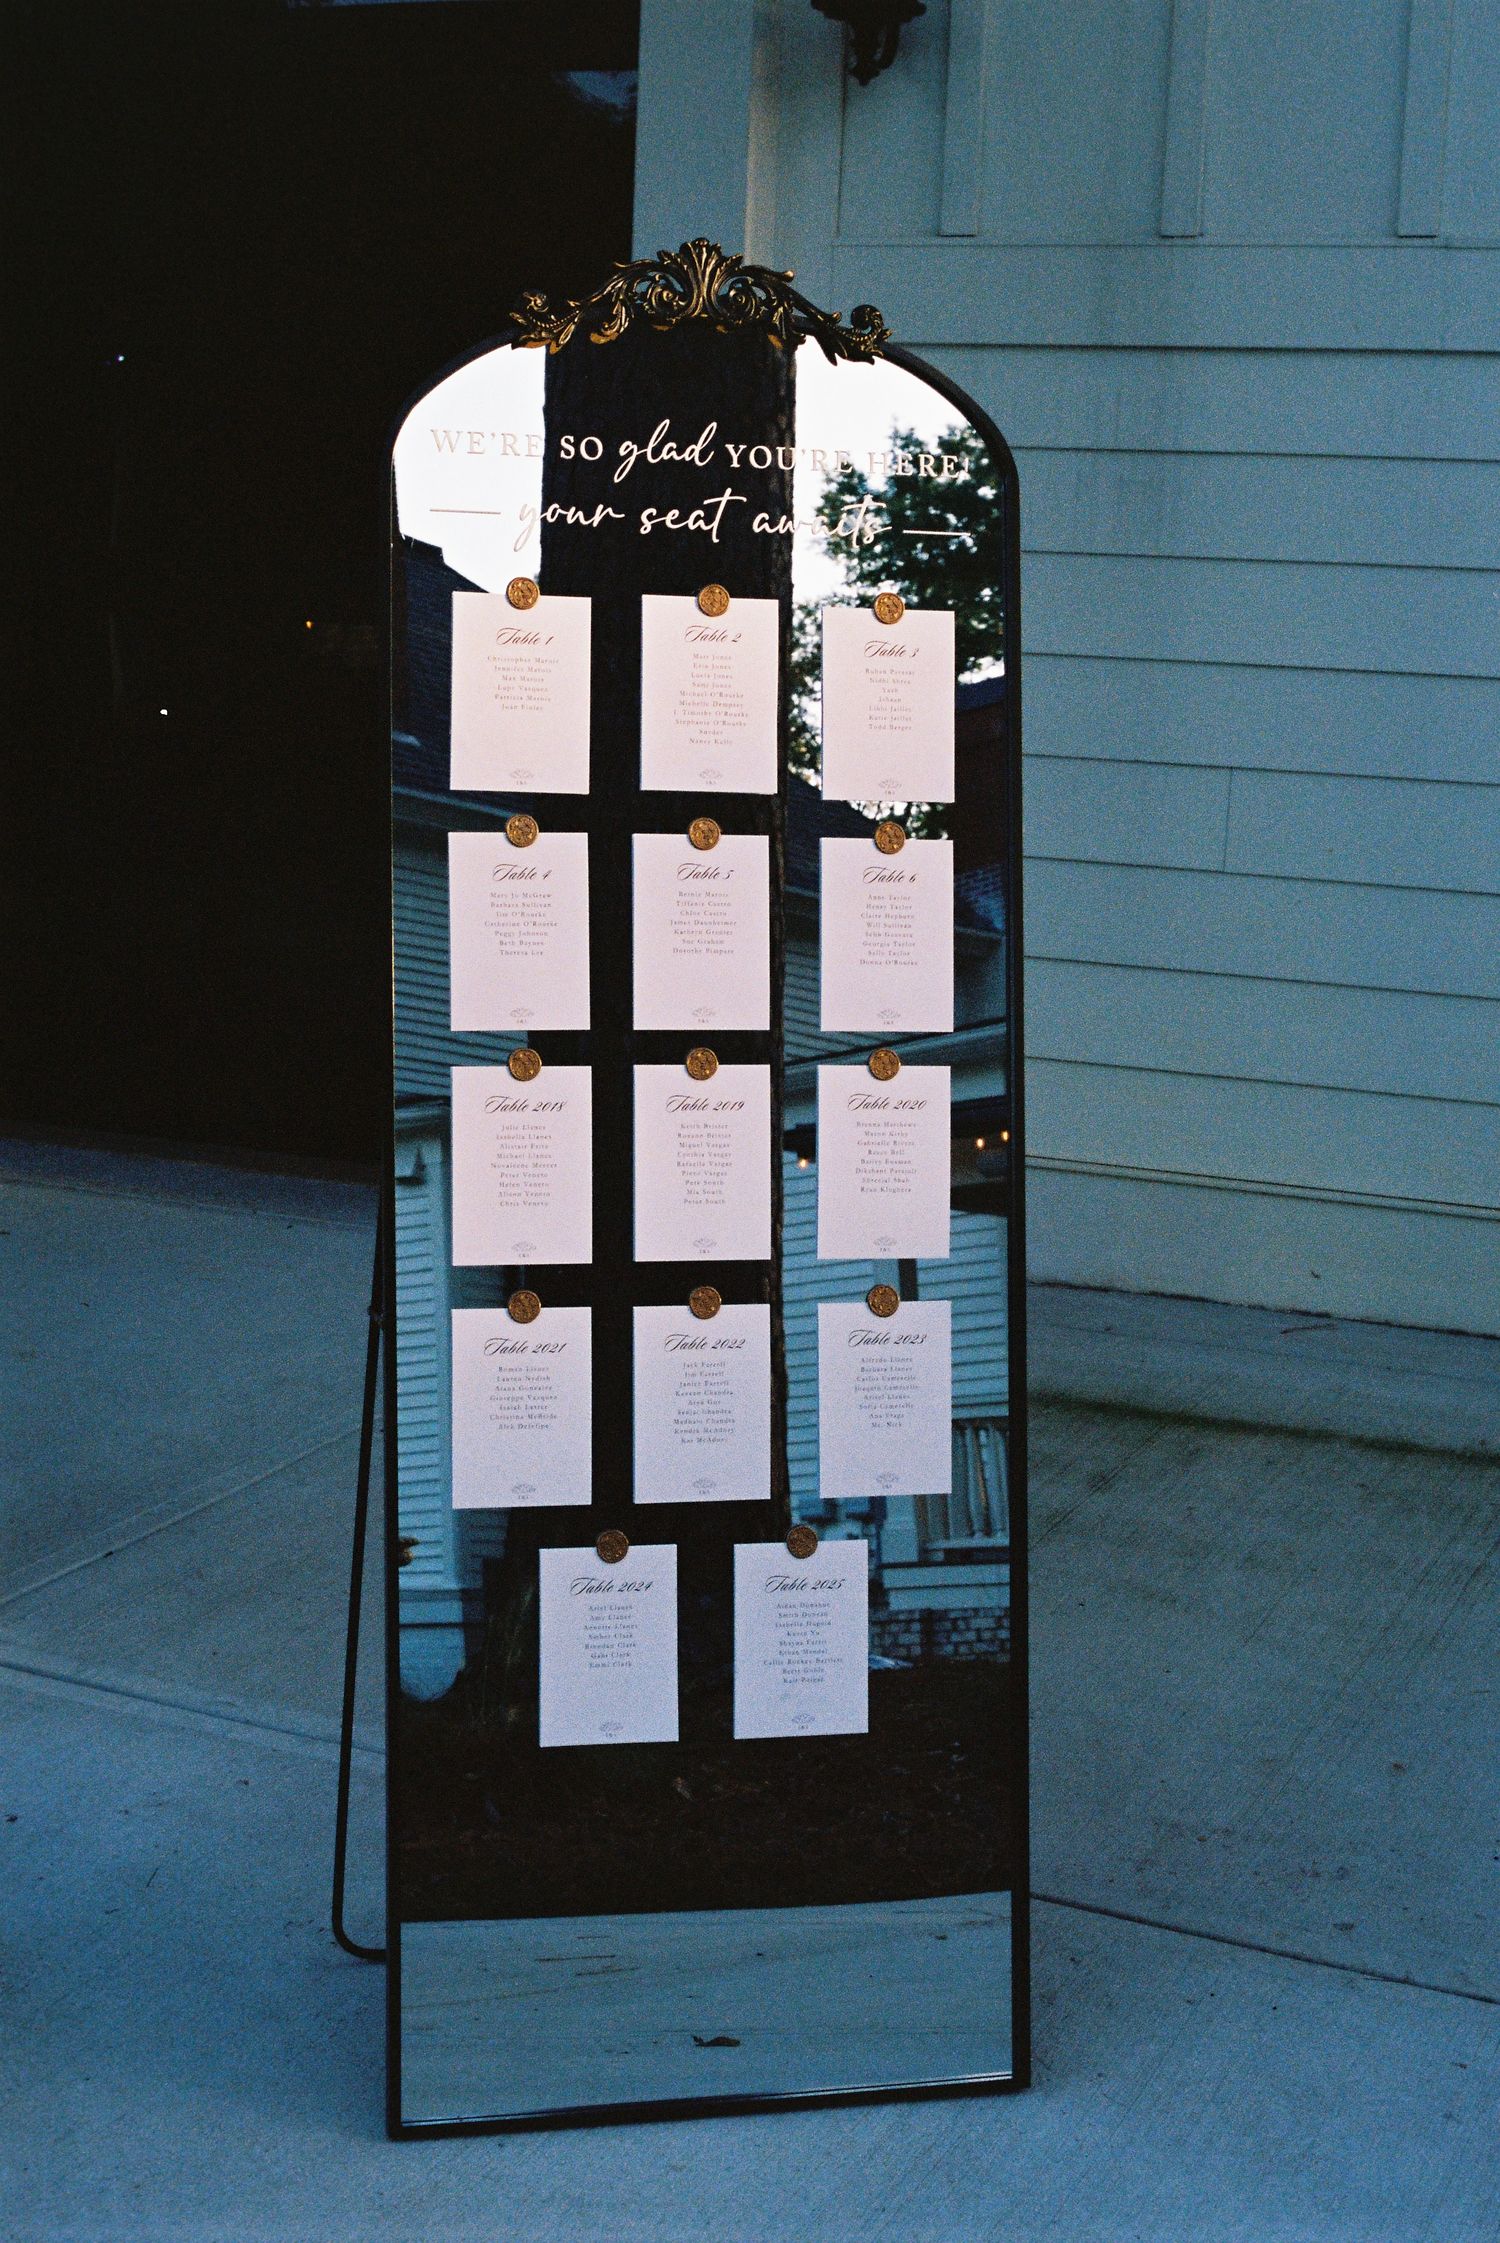 WE'RE SO glad YOU'RE HERE!
your seat awaits
Table 1
Christopher Marois
Jennifer Marois
Max Marois
Lupe Vasquez
Patricia Marois
Joan Finley
Table 2
Matt Jones
Erin Jones
Lucia Jones
Samy Jones
Michael O'Rourke
Michelle Dempsey
J. Timothy O'Rourke
Stephanie O'Rourke
Snyder
Nancy Kelly
Table 3
Ruban
Nidhi
Yash
Ishaan
Libbi Jaillet
Katie Jaillet
Todd Berger
Table 4
Mary Jo McGraw
Barbara Sullivan
O'Rourke
Catherine O'Rourke
Peggy Johnson
Beth Baynes
Theresa Lee
Table 5
Bernie Marois
Tiffanie Castro
Chloe Castro
James Dannheimer
Kathryn Grenier
Sue Graham
Dorothy
Table 6
Anne Taylor
Henry Taylor
Claire Hepburn
Will Sullivan
John
Georgia Taylor
Sally Taylor
Donna O'Rourke
Table 2018
Julie Llanes
Isabella Llanes
Alistair
Michael Llanes
Novalenne Mercer
Peter Veneto
Helen Veneto
Alison Veneto
Chris Veneto
Table 2019
Keith Brister
Roxane Brister
Miguel Vargas
Cynthia Vargas
Rafaella Vargas
Piero Vargas
Pete South
Mia South
Peter South
Table 2020
Brenna Matthews
Mason Kirby
Gabrielle Rivera
Reece Bell
Barrey Eusman
Dikshant
Shah
Ryan Klughers
Table 2021
Roman Llanes
Lauren Nydish
Gonzalez
Giuseppe Vazquez
Isaiah Lester
Christina McBride
Alek DeFelipe
Table 2022
Jack Farrell
Jim Farrell
Janice Farrell
Chandra
Arya Guy
Chandra
Madhulo Chandra
Kendra McAdney
Kas McAdney
Table 2023
Alfredo Llanes
Barbara Llanes
Carlos Camerelle
Joaquin Camerelle
Arisel Llanes
Sofia Camerelle
Ana Fraga
Mr. Nick
Table 2024
Ariel Llanes
Amy Llanes
Annette Llanes
Amber Clark
Brendan Clark
Gabi Clark
Emma Clark
Table 2025
Aidan Donahue
Smith Duncan
Isabella
Karen Xu
Shayna Farris
Ethan Mendel
Callie Rookey Bartlett
Brett Goble
Kait Poteat